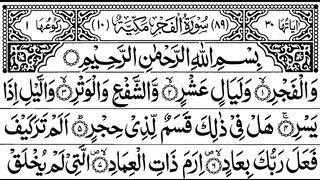 اٰیَاتُهَا ٣٠ (٨٩) سُوْرَةُ الْفَجْرِ مَكِّیَّةٌ (١٠) رُكُوْعُهَا ١
بِسْمِ اللّٰهِ الرَّحْمٰنِ الرَّحِیْمِ
وَالْفَجْرِ ۙ١ وَلَیَالٍ عَشْرٍ ۙ٢ وَّالشَّفْعِ وَالْوَتْرِ ۙ٣ وَالَّیْلِ اِذَا
یَسْرِ ۚ٤ هَلْ فِیْ ذٰلِكَ قَسَمٌ لِّذِیْ حِجْرٍ ؕ٥ اَلَمْ تَرَ كَیْفَ
فَعَلَ رَبُّكَ بِعَادٍ ۙ٦ اِرَمَ ذَاتِ الْعِمَادِ ۙ٧ الَّتِیْ لَمْ یُخْلَقْ